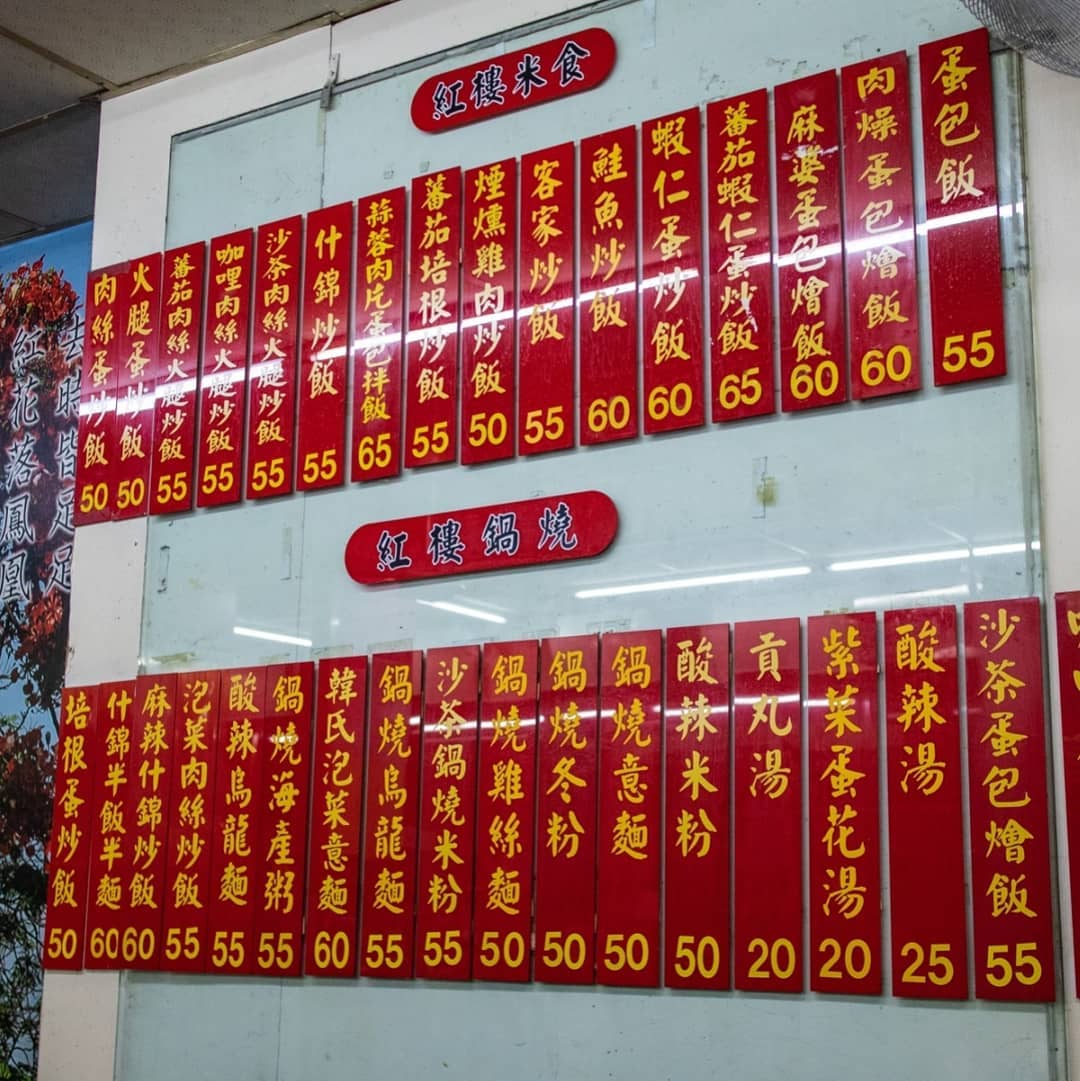 紅樓米食
蛋包飯 55
肉燥蛋包燴飯 60
麻婆蛋包燴飯 60
蕃茄蝦仁蛋炒飯 65
蝦仁蛋炒飯 60
鮭魚炒飯 60
客家炒飯 55
煙燻雞肉炒飯 50
蕃茄培根炒飯 55
蒜蓉肉片蛋包拌飯 65
什錦炒飯 55
沙茶肉絲火腿炒飯 55
咖哩肉絲火腿炒飯 55
蕃茄肉絲火腿炒飯 55
火腿蛋炒飯 50
肉絲蛋炒飯 50
紅樓鍋燒
沙茶蛋包燴飯 55
酸辣湯 25
紫菜蛋花湯 20
貢丸湯 20
酸辣米粉 50
鍋燒意麵 50
鍋燒冬粉 50
鍋燒雞絲麵 50
沙茶鍋燒米粉 55
鍋燒烏龍麵 55
韓氏泡菜意麵 60
鍋燒海產粥 55
酸辣烏龍麵 55
泡菜肉絲炒飯 55
麻辣什錦炒飯 60
什錦半飯半麵 60
培根蛋炒飯 50
時皆足足
紅花落鳳凰